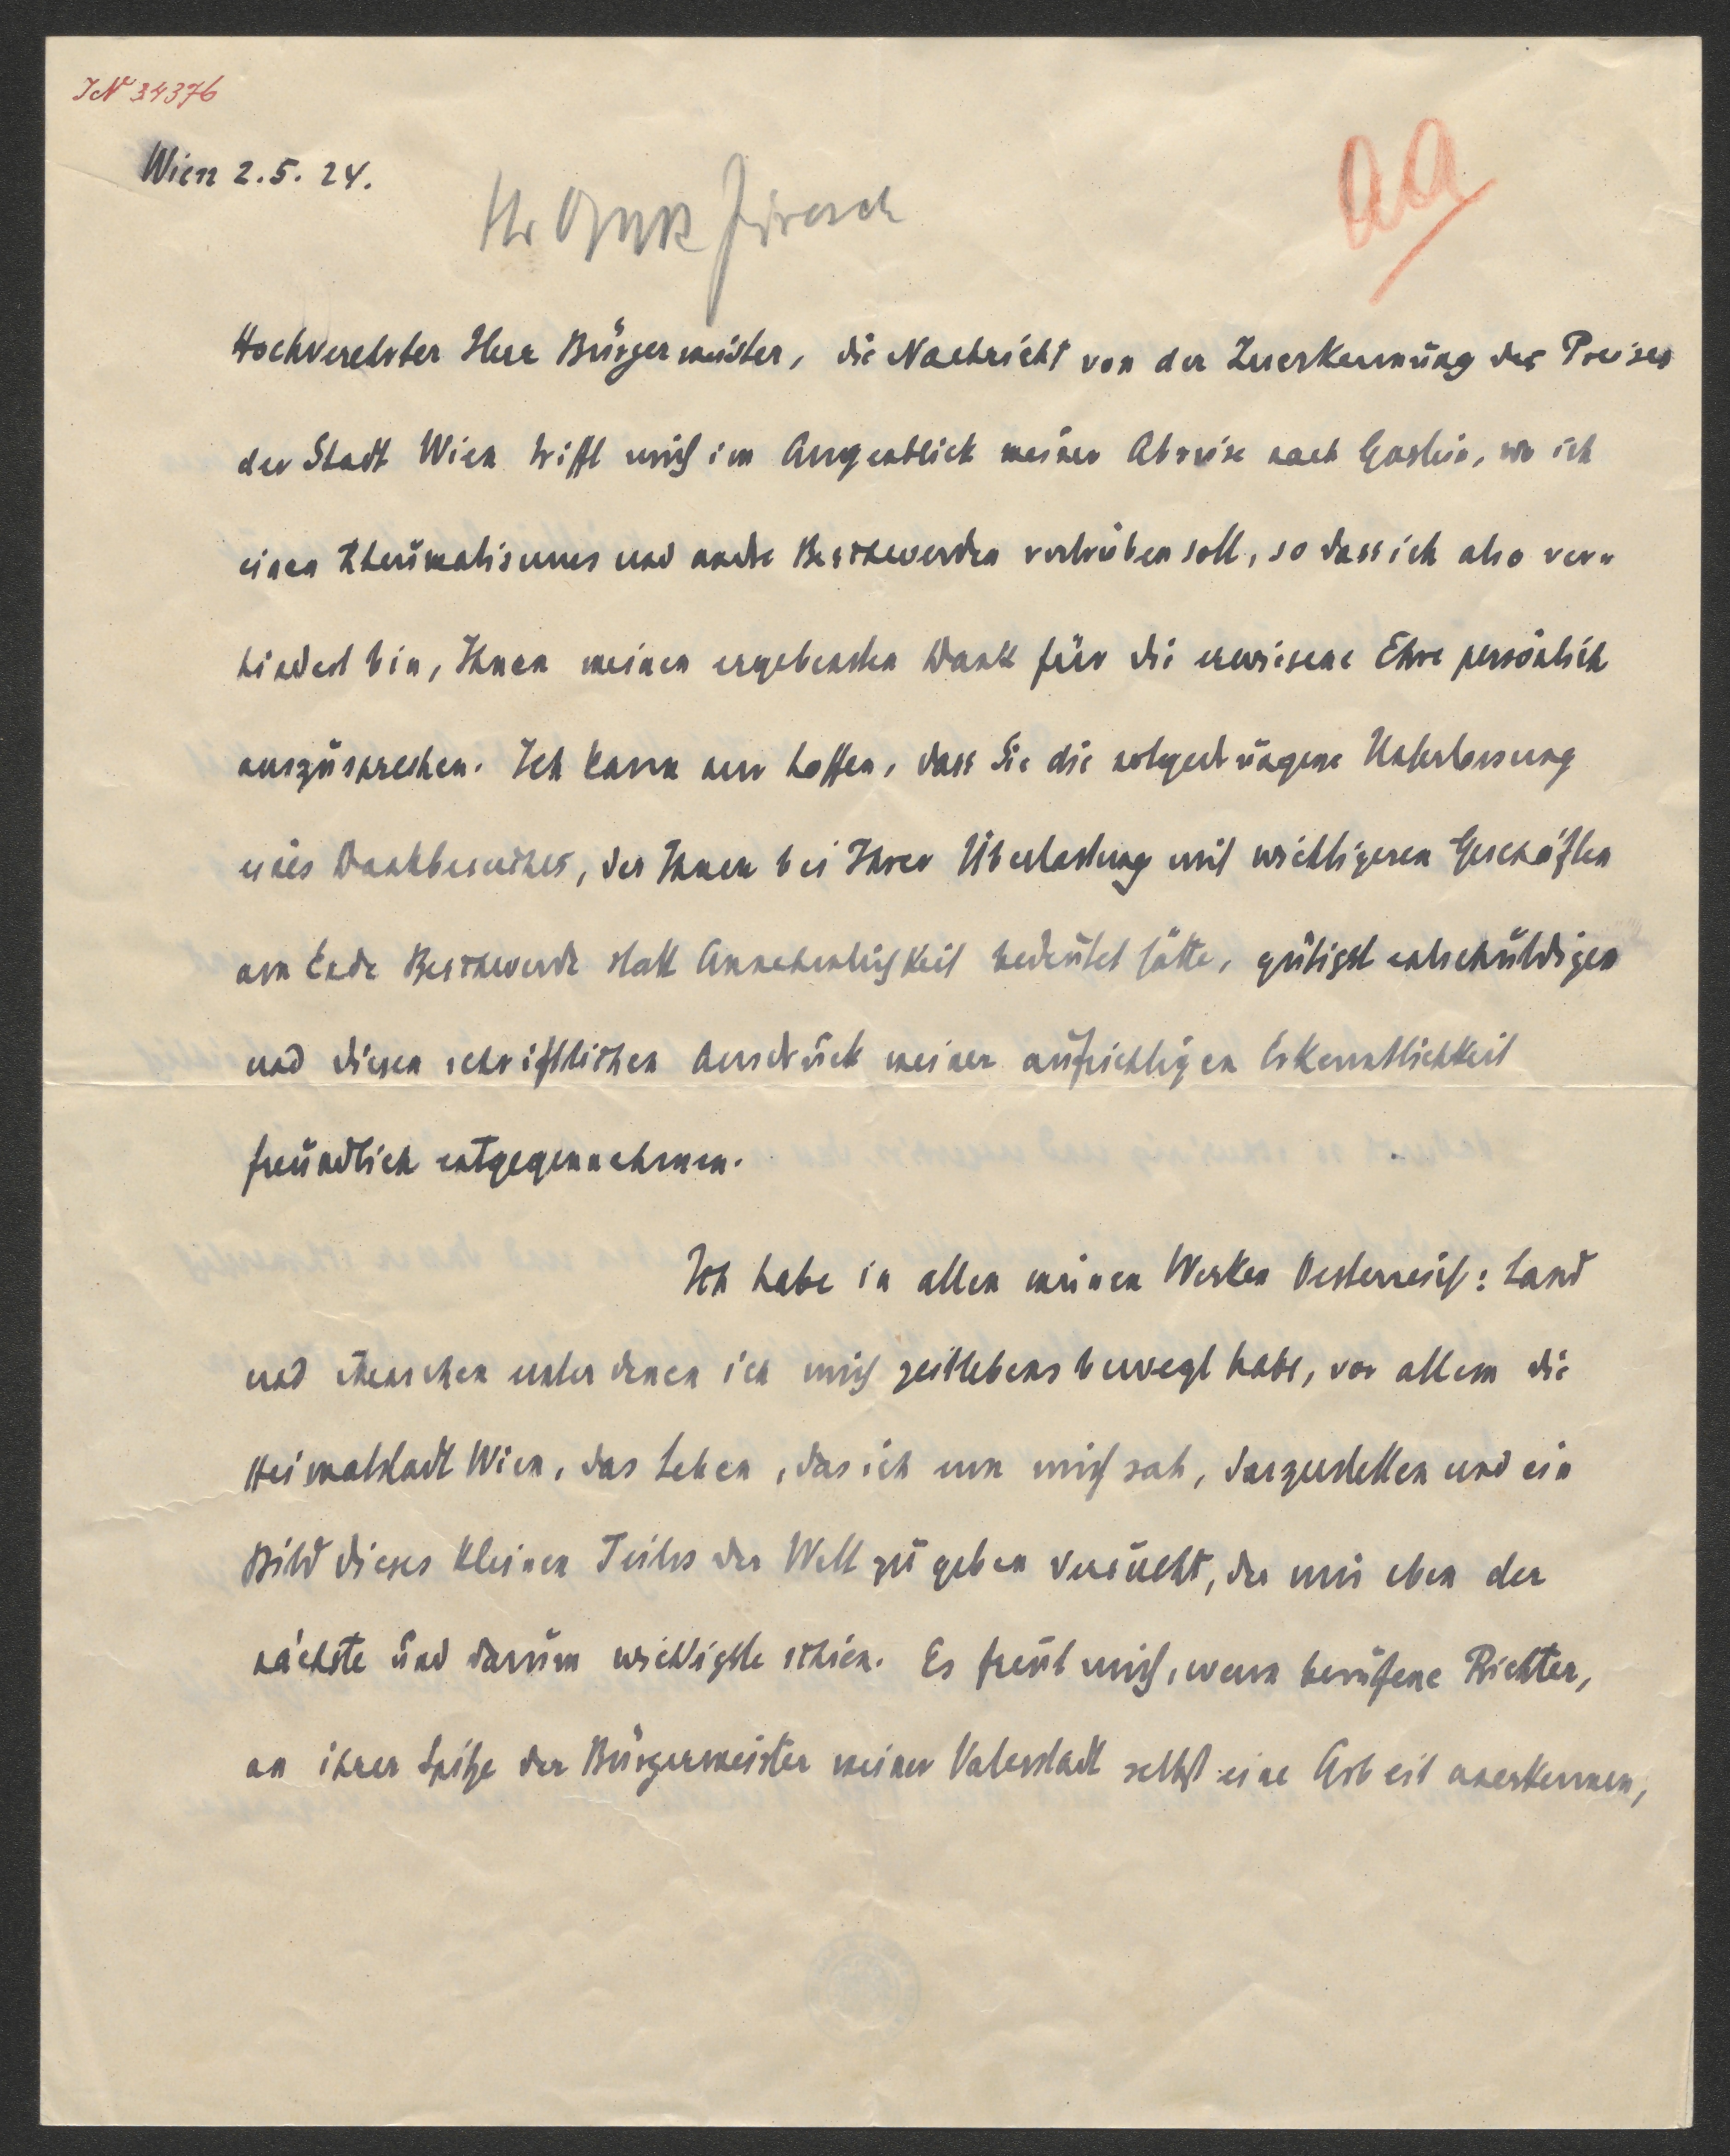 IN 34376
Wien 2.5.24.
Hr
aa
Hochverehrter Herr Bürgermeister, die Nachricht von der Zuerkennung des Preises
der Stadt Wien trifft mich im Augenblick meiner Abreise nach Gastein, wo ich
einen Rheumatismus und andre Beschwerden vertreiben soll, so dass ich also ver-
hindert bin, Ihnen meinen ergebensten Dank für die erwiesene Ehre persönlich
auszusprechen. Ich kann nur hoffen, dass Sie die notgedrungene Unterlassung
eines Dankbesuches, der Ihnen bei Ihrer Überlastung mit wichtigeren Geschäften
am Ende Beschwerde statt Annehmlichkeit bedeutet hätte, gütigst entschuldigen
und diesen schriftlichen Ausdruck meiner aufrichtigen Erkenntlichkeit
freundlich entgegennehmen.
Ich habe in allen meinen Werken Oesterreich: Land
und Menschen unter denen ich mich zeitlebens bewegt habe, vor allem die
Heimatstadt Wien, das Leben, das ich um mich sah, darzustellen und ein
Bild dieses kleinen Teiles der Welt zu geben versucht, der mir eben der
nächste und darum wichtigste schien. Es freut mich, wenn berufene Richter,
an ihrer Spitze der Bürgermeister meiner Vaterstadt selbst eine Arbeit anerkennen,